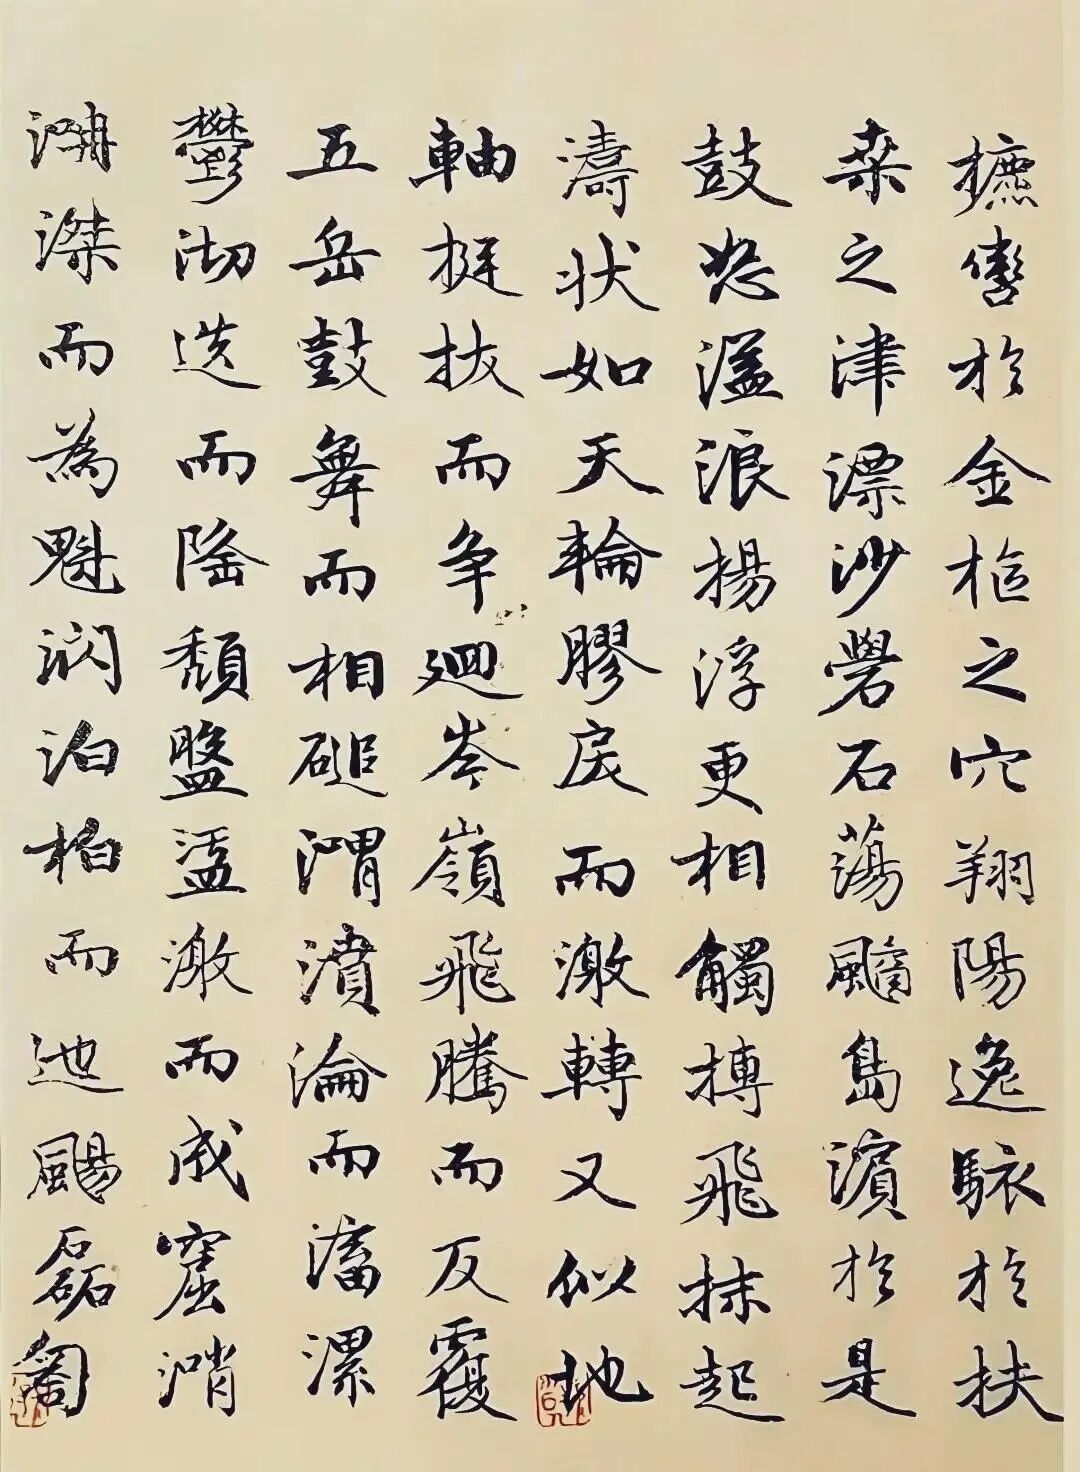 摭轡於金樞之穴翔陽逸駭於扶
桑之津漂沙礐石蕩䬍島濱於是
鼓怒溢浪揚浮更相觸搏飛抹起
濤狀如天輪膠戾而激轉又似地
軸挺拔而争廻岑嶺飛騰而反覆
五岳鼓舞而相磓渭濆淪而滀漯
鬱沏迭而隆頹盤盓激而成窟
滐而為魁㴸泊柏而迆颺磊匒